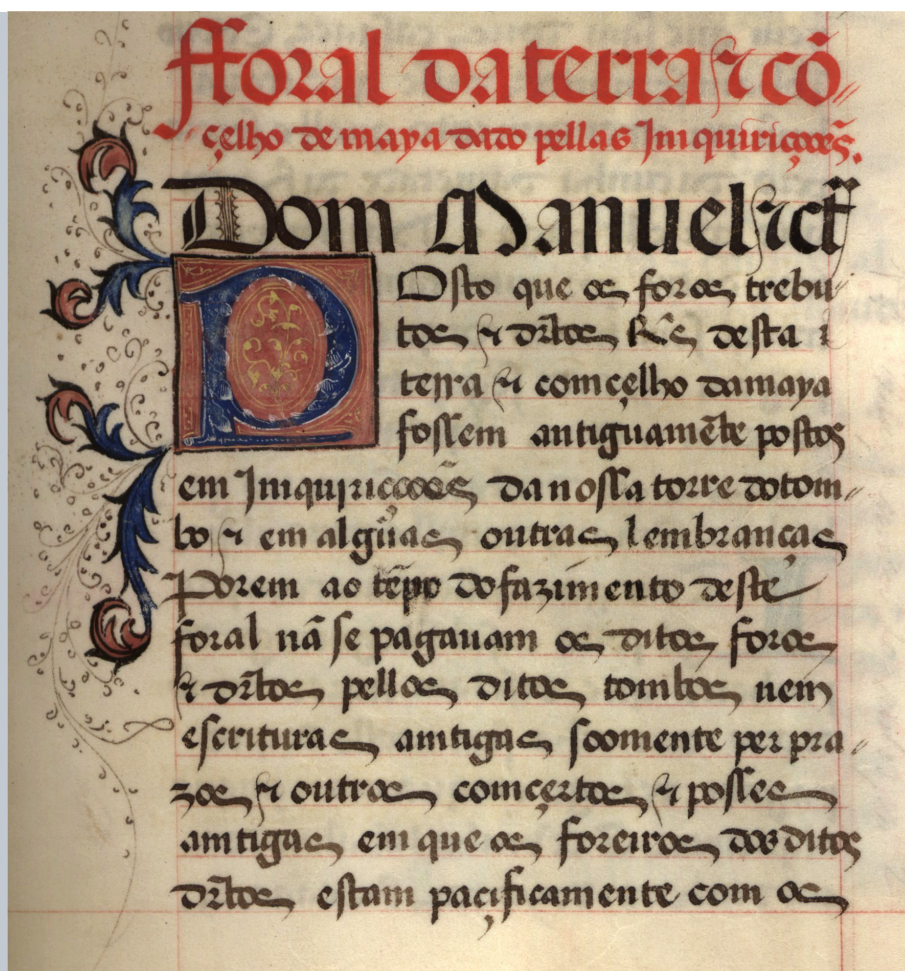 fforal da terra ⁊ cõ//
çelho de maya dado pellas Jmquiriçoões.
Dom Manuel ⁊cᵗᵃ
POsto que os foros trebu//
tos ⁊ dr̃tos Res desta
terra ⁊ comçelho da maya
fossem antiguamẽte postos
em Jmquiriçoões da nossa torre do tom//
bo ⁊ em algũas outras lembranças
Porem ao tẽpo do fazimento deste
foral nã se pagauam os ditos foros
⁊ dr̃tos pellos ditos tombos nem
escrituras amtigas soomente per pra//
zos ⁊ outros comçertos ⁊ posses
amtigas em que os foreiros dos ditos
dr̃tos estam paçificamente com os